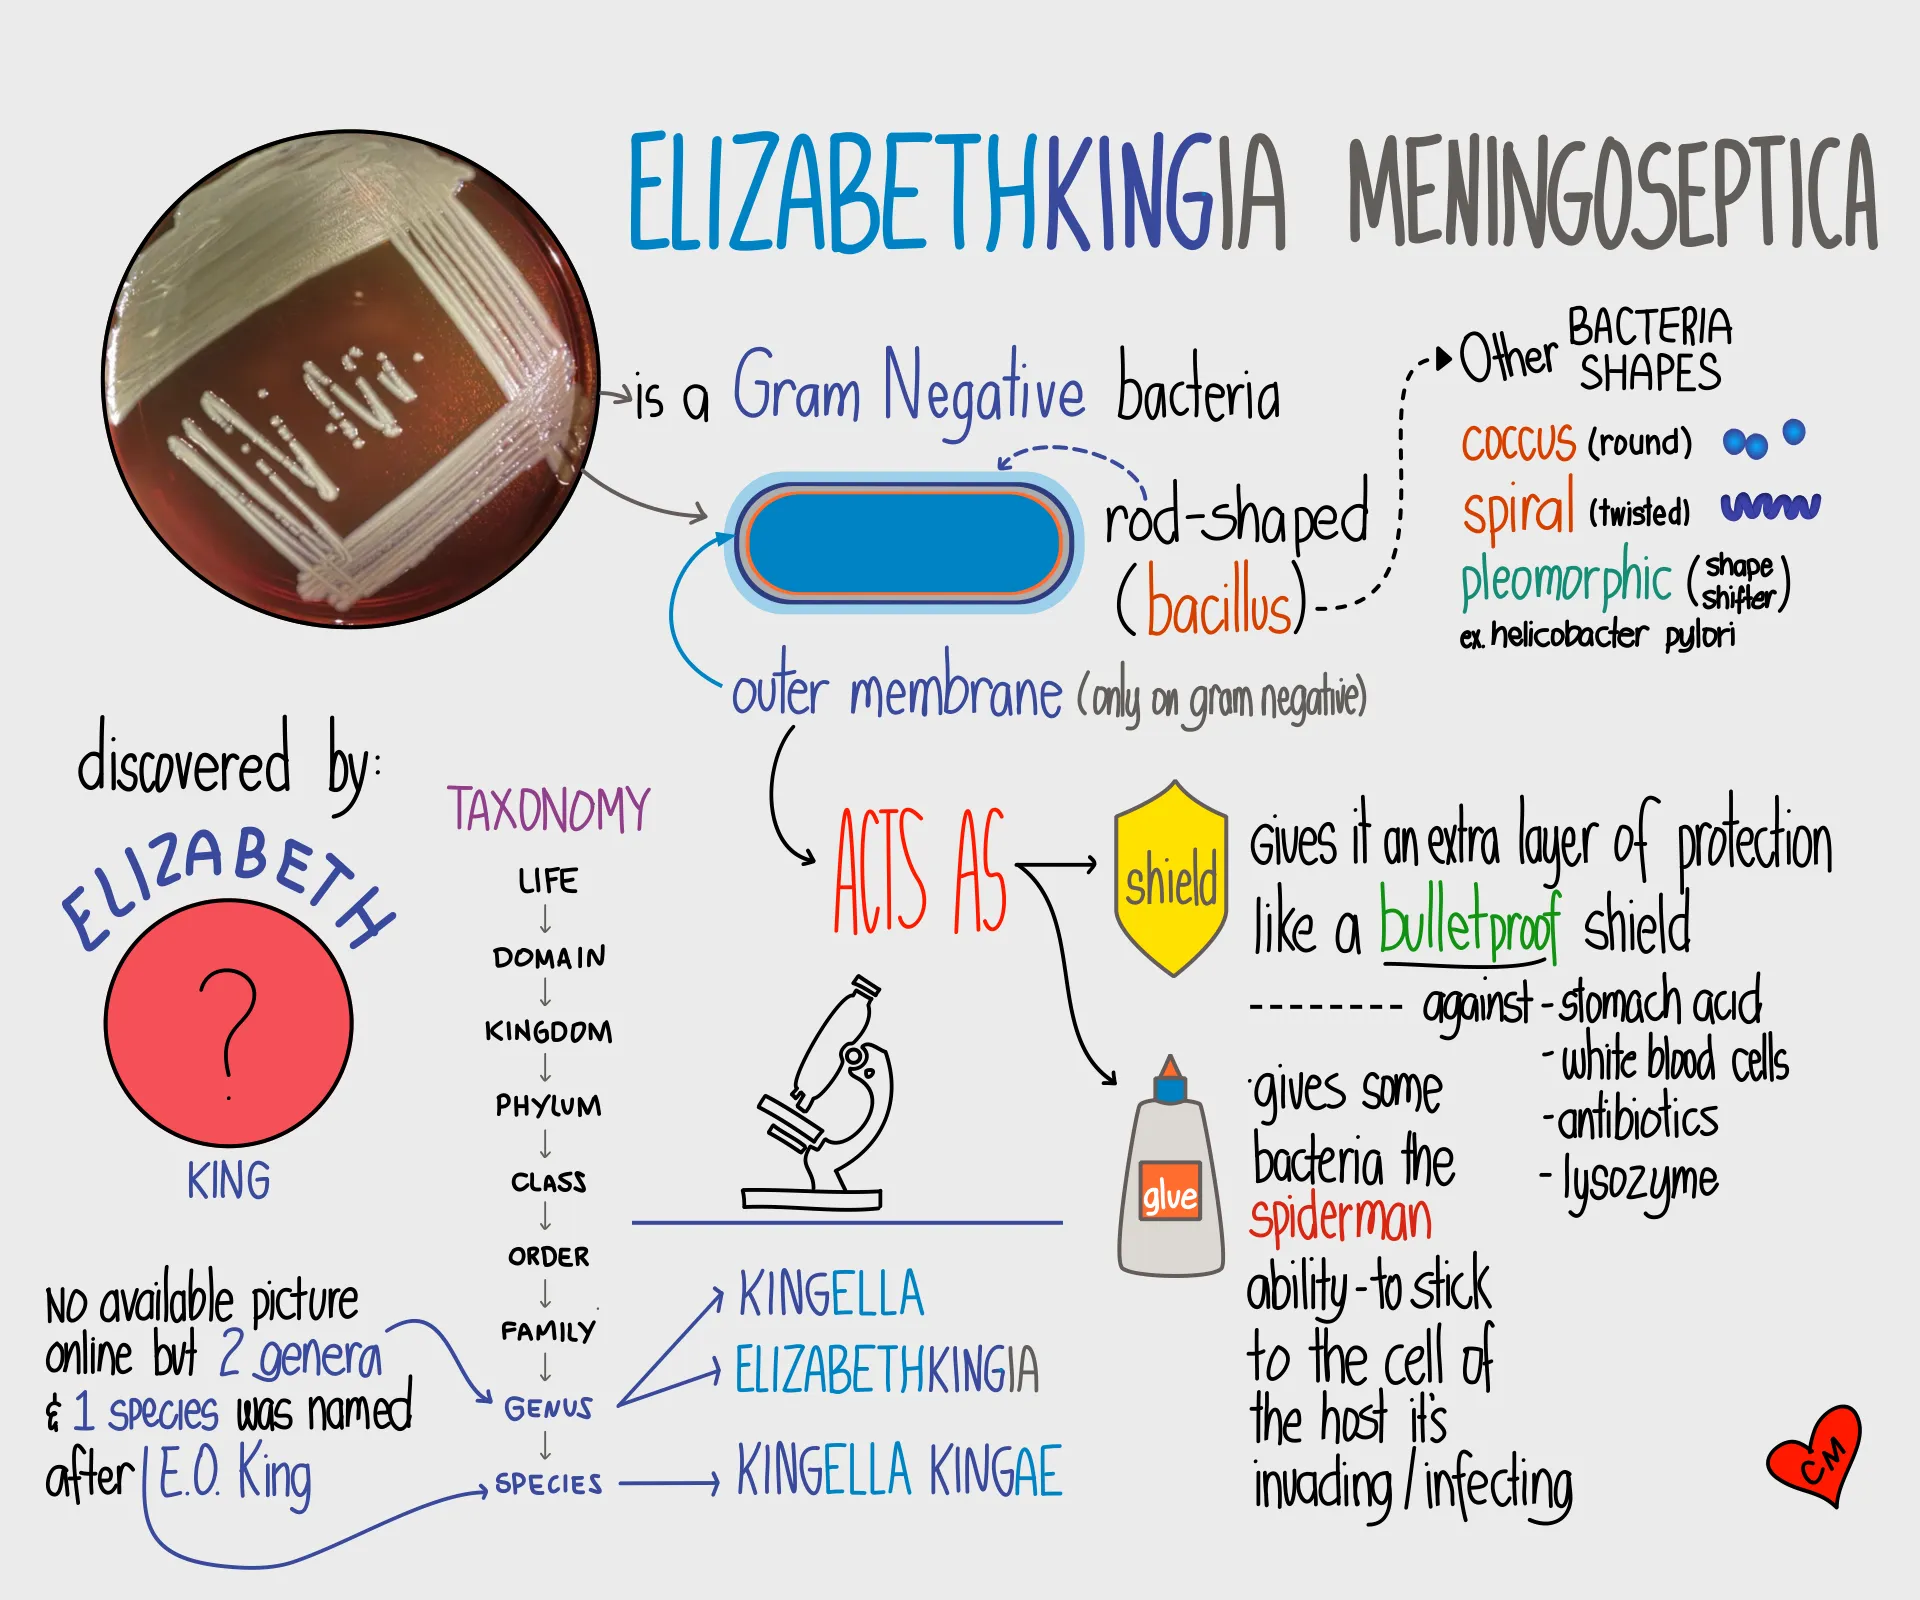 ELIZABETHKINGIA MENINGOSEPTICA
is a Gram Negative bacteria
rod-shaped
(bacillus)
Other BACTERIA
SHAPES
coccus (round)
spiral (twisted)
pleomorphic (shape
shifter)
ex. helicobacter pylori
outer membrane (only on gram negative)
ACTS AS
shield
Gives it an extra layer of protection
like a bulletproof shield
-------- against - stomach acid
- white blood cells
- antibiotics
- lysozyme
glue
gives some
bacteria the
spiderman
ability - to stick
to the cell of
the host it's
invading / infecting
discovered by:
ELIZABETH
?
KING
No available picture
online but 2 genera
& 1 species was named
after E.O. King
TAXONOMY
LIFE
DOMAIN
KINGDOM
PHYLUM
CLASS
ORDER
FAMILY
GENUS
SPECIES
KINGELLA
ELIZABETHKINGIA
KINGELLA KINGAE
CM